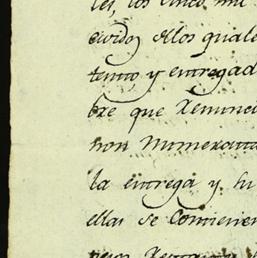 les, los cinco mil
civido, dlos quale
tento y entregad
bre que Renuncia
non Numerata
la entrega y su
ellas se Contienen